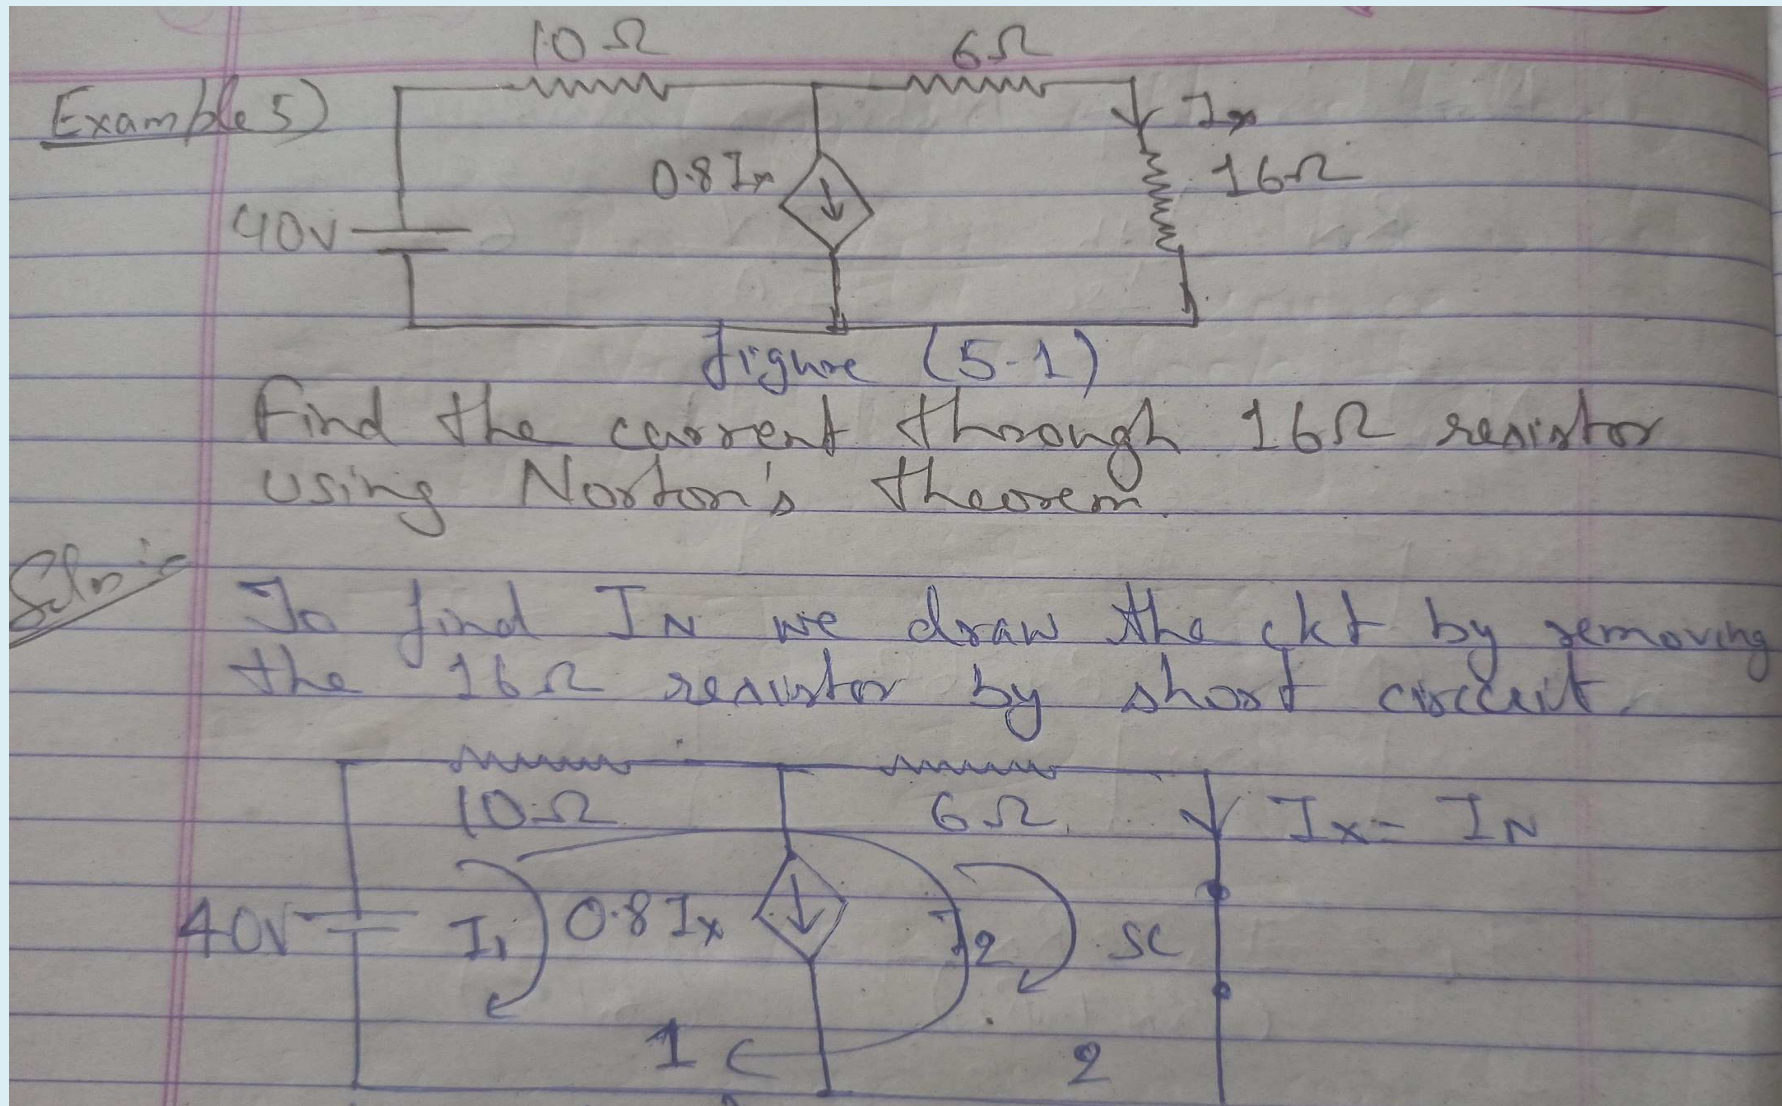 10Ω 6Ω
Example 5)
Ix
0.8Ix 16Ω
40v
figure (5-1)
Find the current through 16Ω resistor
using Norton's theorem.
Soln:-
To find IN we draw the ckt by removing
the 16Ω resistor by short circuit.
10Ω 6Ω Ix = IN
40V I1 0.8Ix I2 SC
1 2